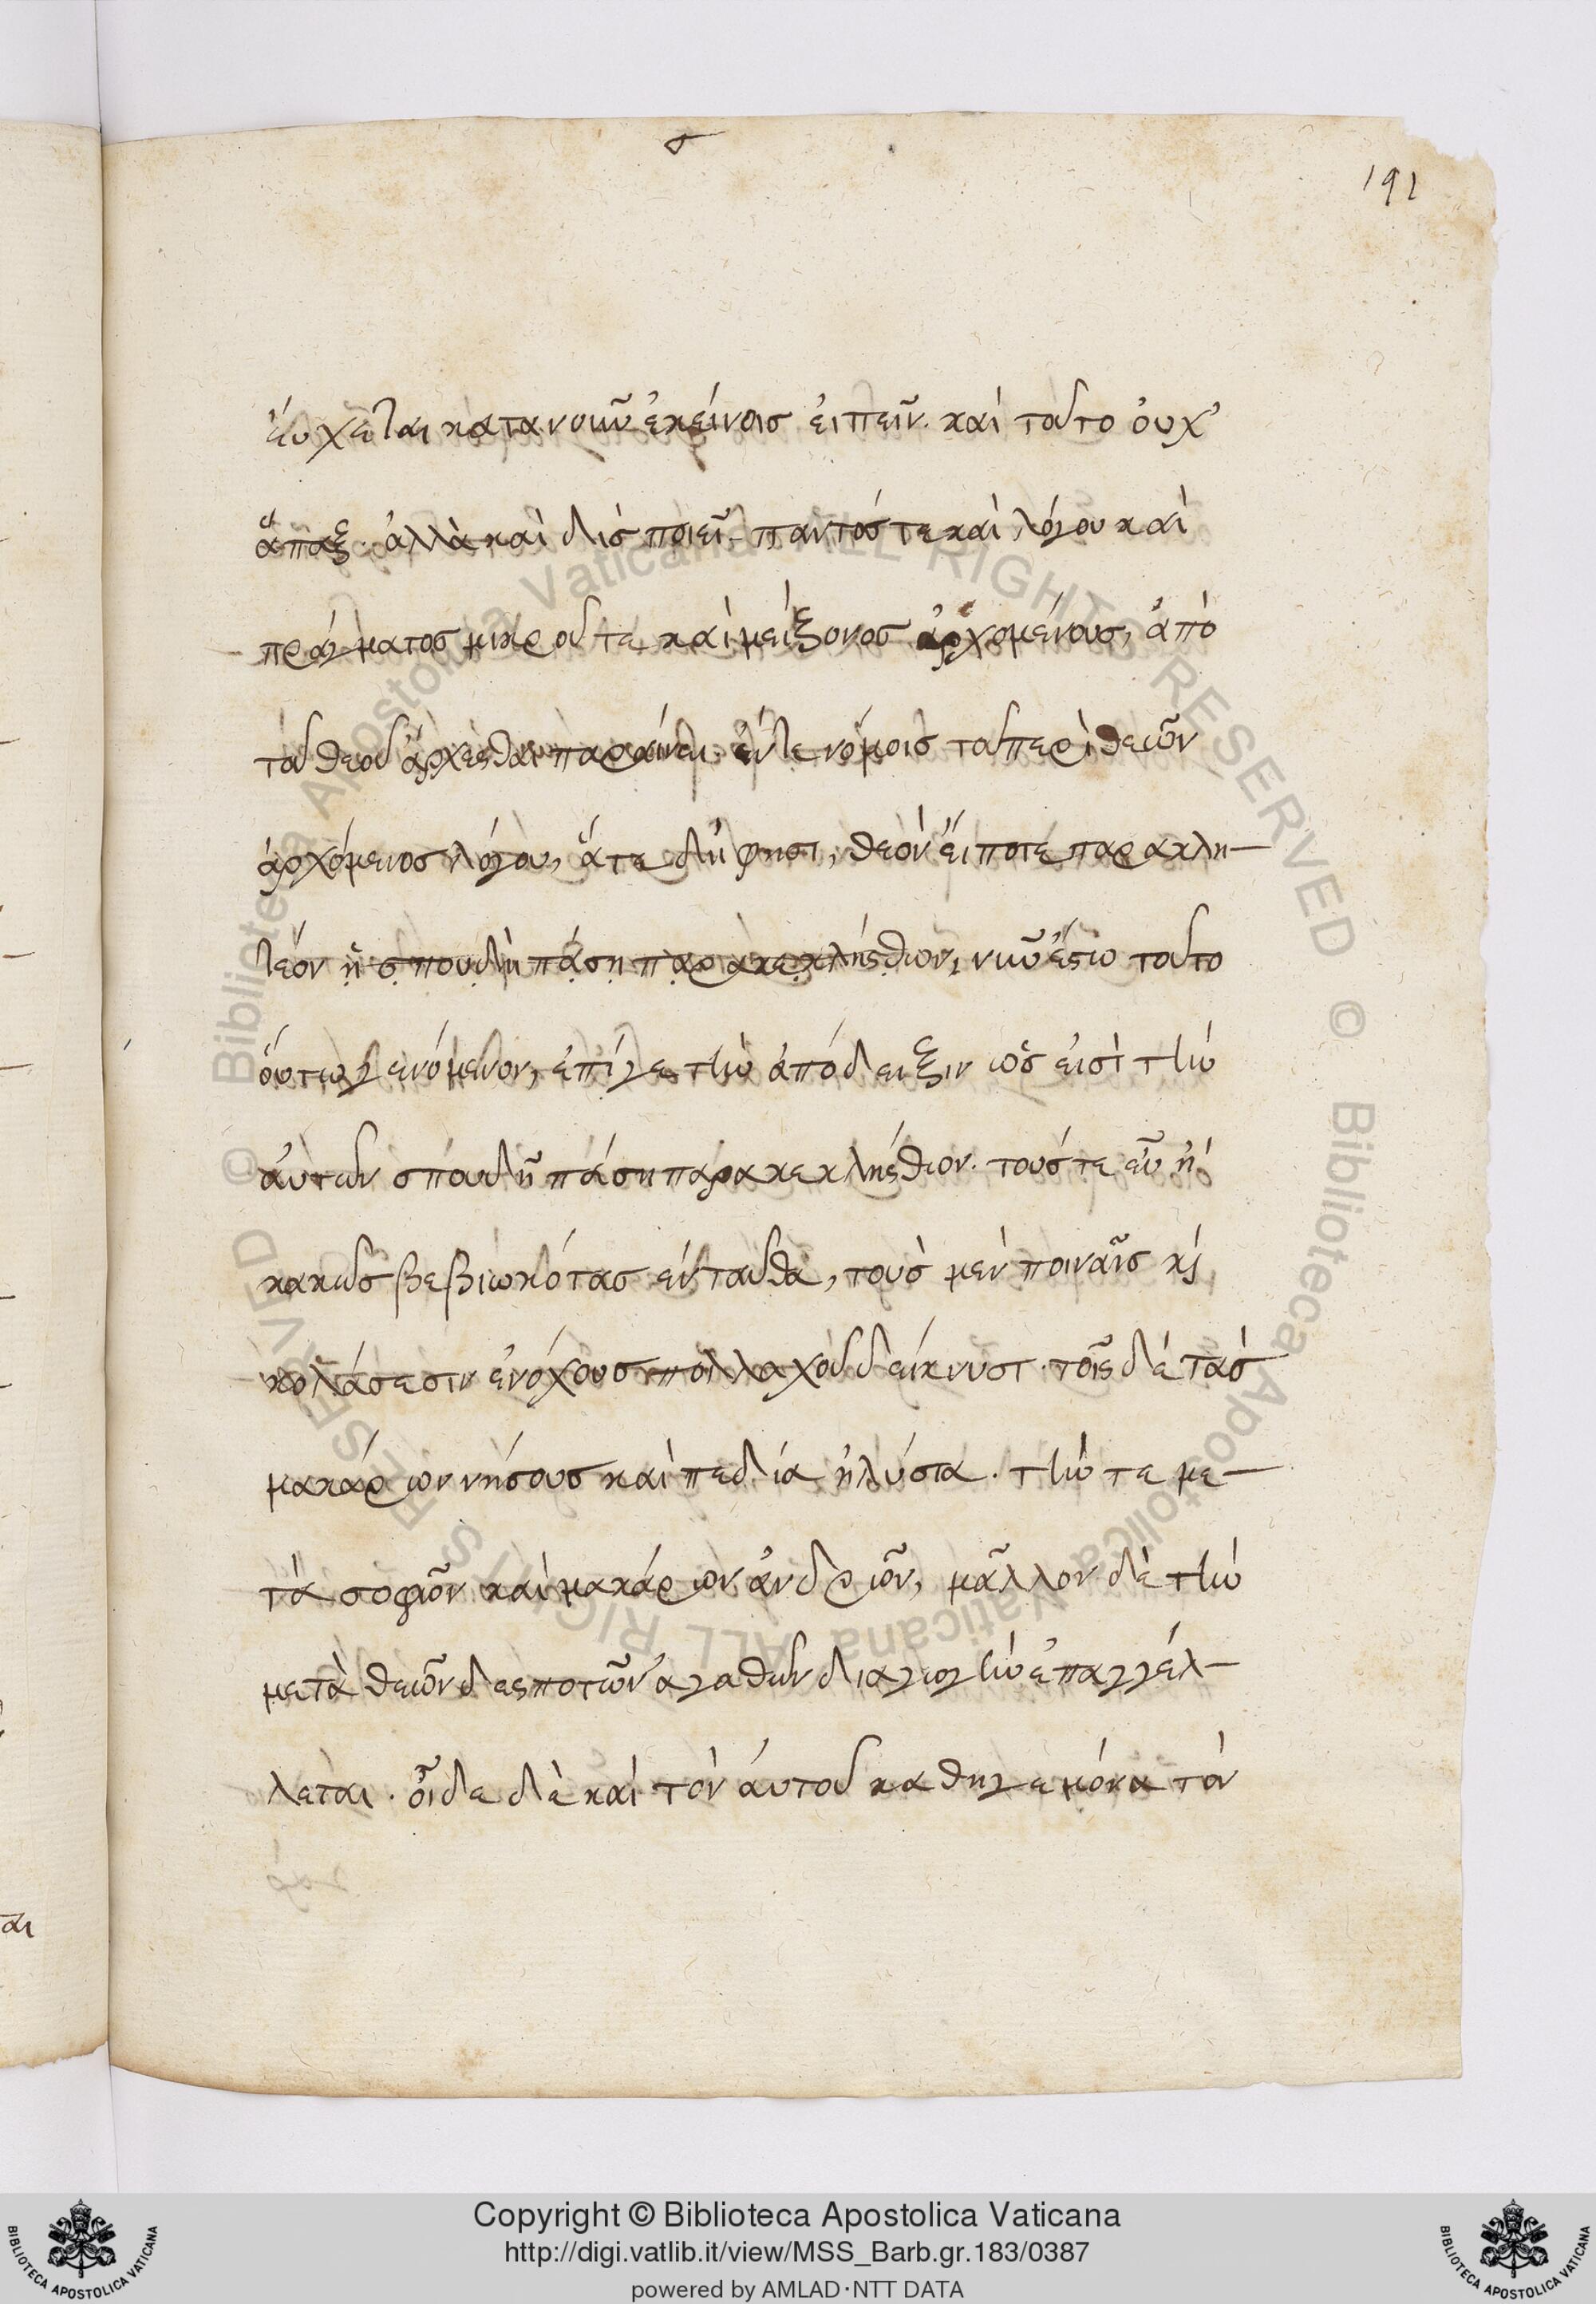 σ
191
ἐύχεται κατανοῦν ἐκείνοισ ἐιπεῖν. καὶ τοῦτο ὀυχ'
ἅπαξ. ἀλλὰ καὶ δὶσ ποιεῖ. παντόσ τε καὶ λόγου καὶ
πράγματοσ μικροῦ τε καὶ μείζονοσ ἀρχομένουσ, ἀπὸ
τοῦ θεοῦ ἄρχεσθαι παραίνει. ἔν τε νόμοισ τοῦ περὶ θεῶν
ἀρχόμενοσ λόγου, ἅτε δή φησι, θεὸν ἔι ποτε παρακλη-
τέον ἢ σπουδὴ πάση παρακεκλήσθων, νῦν ἔστω τοῦτο
ὅυτω γενόμενον, ἐπί γε τὴν ἀπόδειξιν ὡσ εἰσὶ τὴν
ἀυτῶν σπουδῆ πάση παρακεκλήσθων. τούσ τε εὖ ἢ
κακῶσ βεβιωκότασ ἐνταῦθα, τοὺσ μὲν ποιναῖσ κὶ
κολάσεσιν ἐνόχουσ πολλαχοῦ δείκνυσι. τοῖσ δὲ τὰσ
μακάρων νήσουσ καὶ πεδία ἠλύσια. τήν τε με-
τὰ σοφῶν καὶ μακάρων ἀνδρῶν, μᾶλλον δὲ τὴν
μετὰ θεῶν δεσποτῶν ἀγαθῶν διαγωγὴν ἐπαγγέλ-
λεται. οἶδε δὲ καὶ τὸν ἀυτοῦ καθηγεμόνα τὸν
αι
Copyright © Biblioteca Apostolica Vaticana
http://digi.vatlib.it/view/MSS_Barb.gr.183/0387
powered by AMLAD·NTT DATA
BIBLIOTECA APOSTOLICA VATICANA
BIBLIOTECA APOSTOLICA VATICANA
© Biblioteca Apostolica Vaticana ALL RIGHTS RESERVED © Biblioteca Apostolica Vaticana ALL RIGHTS RESERVED